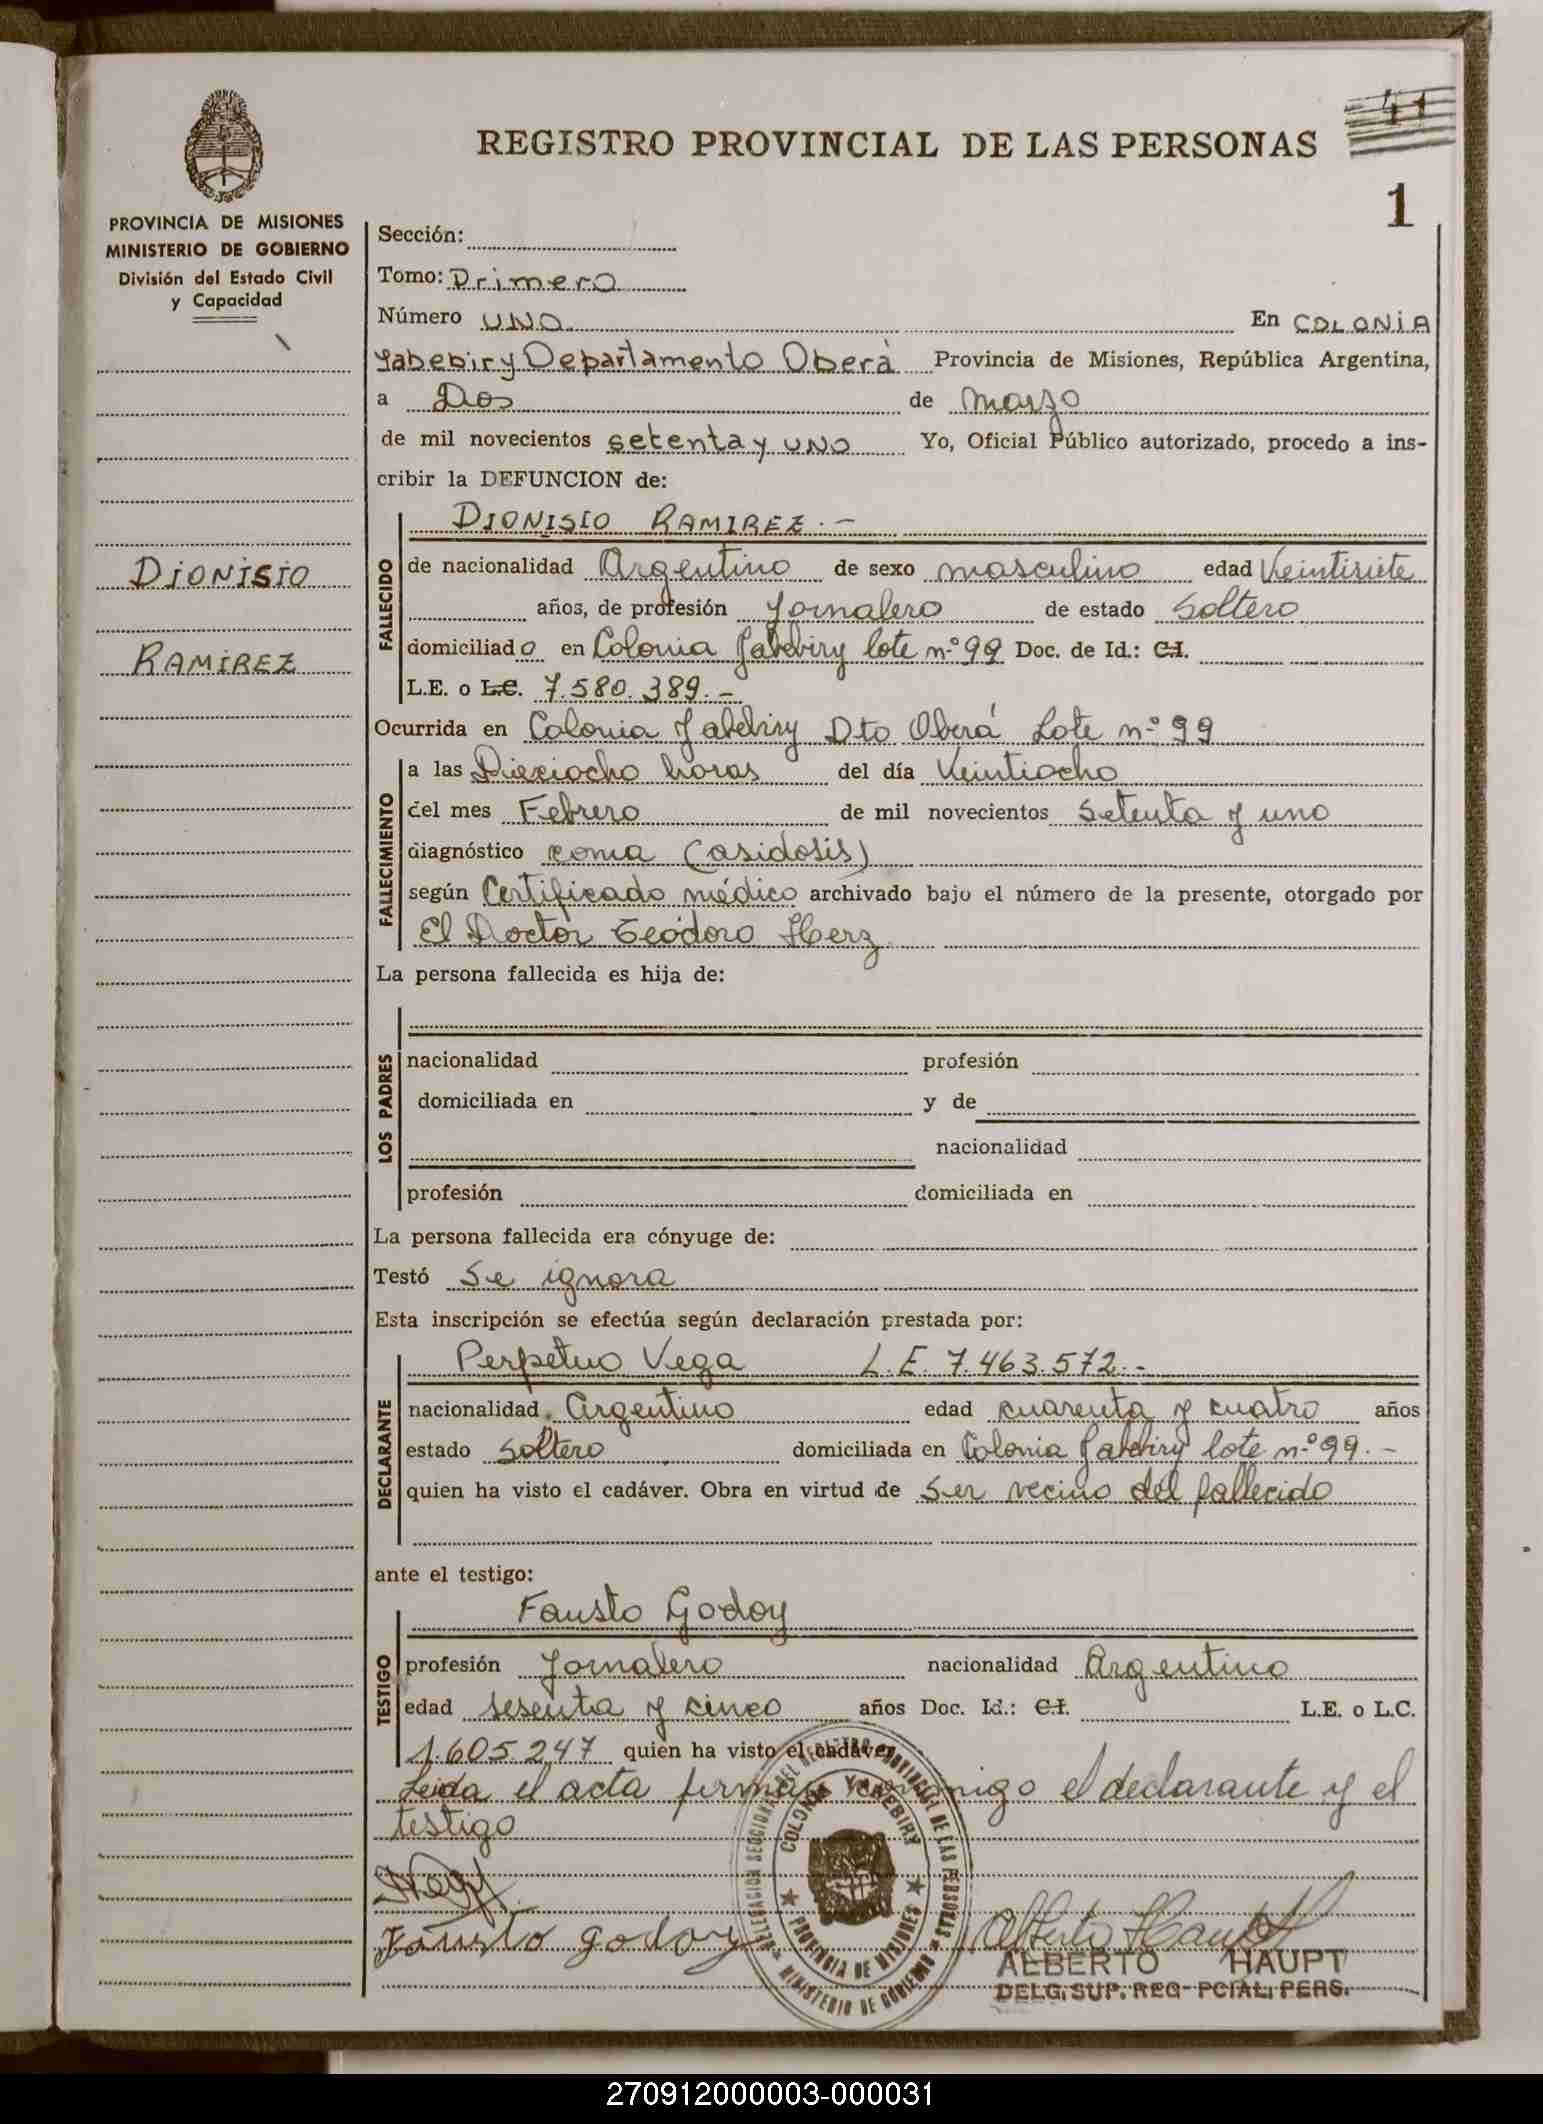 41
REGISTRO PROVINCIAL DE LAS PERSONAS
1
PROVINCIA DE MISIONES
MINISTERIO DE GOBIERNO
División del Estado Civil
y Capacidad
DIONISIO
RAMIREZ
Sección:
Tomo: Primero
Número UNO En COLONIA
Yabebiry Departamento Oberá Provincia de Misiones, República Argentina,
a Dos de Marzo
de mil novecientos setenta y UNO Yo, Oficial Público autorizado, procedo a ins-
cribir la DEFUNCION de:
DIONISIO RAMIREZ.-
FALLECIDO
de nacionalidad Argentino de sexo masculino edad Veintisiete
años, de profesión Jornalero de estado Soltero
domiciliado en Colonia Yabebiry lote n.º 99 Doc. de Id.: C.I.
L.E. o L.C. 7.580.389.-
Ocurrida en Colonia Yabebiry Dto Oberá Lote n.º 99
FALLECIMIENTO
a las Dieciocho horas del día Veintiocho
del mes Febrero de mil novecientos Setenta y uno
diagnóstico coma (asidosis)
según Certificado médico archivado bajo el número de la presente, otorgado por
El Doctor Teódoro Herz
La persona fallecida es hija de:
LOS PADRES
nacionalidad profesión
domiciliada en y de
nacionalidad
profesión domiciliada en
La persona fallecida era cónyuge de:
Testó Se ignora
Esta inscripción se efectúa según declaración prestada por:
DECLARANTE
Perpetuo Vega L.E. 7.463.572.-
nacionalidad Argentino edad cuarenta y cuatro años
estado Soltero domiciliada en Colonia Yabebiry lote n.º 99.-
quien ha visto el cadáver. Obra en virtud de Ser vecino del fallecido
ante el testigo:
TESTIGO
Fausto Godoy
profesión Jornalero nacionalidad Argentino
edad sesenta y cinco años Doc. Id.: C.I. L.E. o L.C.
1.605.247 quien ha visto el cadáver
Leida el acta firman conmigo el declarante y el
testigo
Fausto godoy
Alberto Haupt
ALBERTO HAUPT
DELG. SUP. REG- PCIAL. PERS.
DELEGACION SECCIONAL DEL REGISTRO PROVINCIAL DE LAS PERSONAS
MINISTERIO DE GOBIERNO
COLONIA YABEBIRY
PROVINCIA DE MISIONES
270912000003-000031